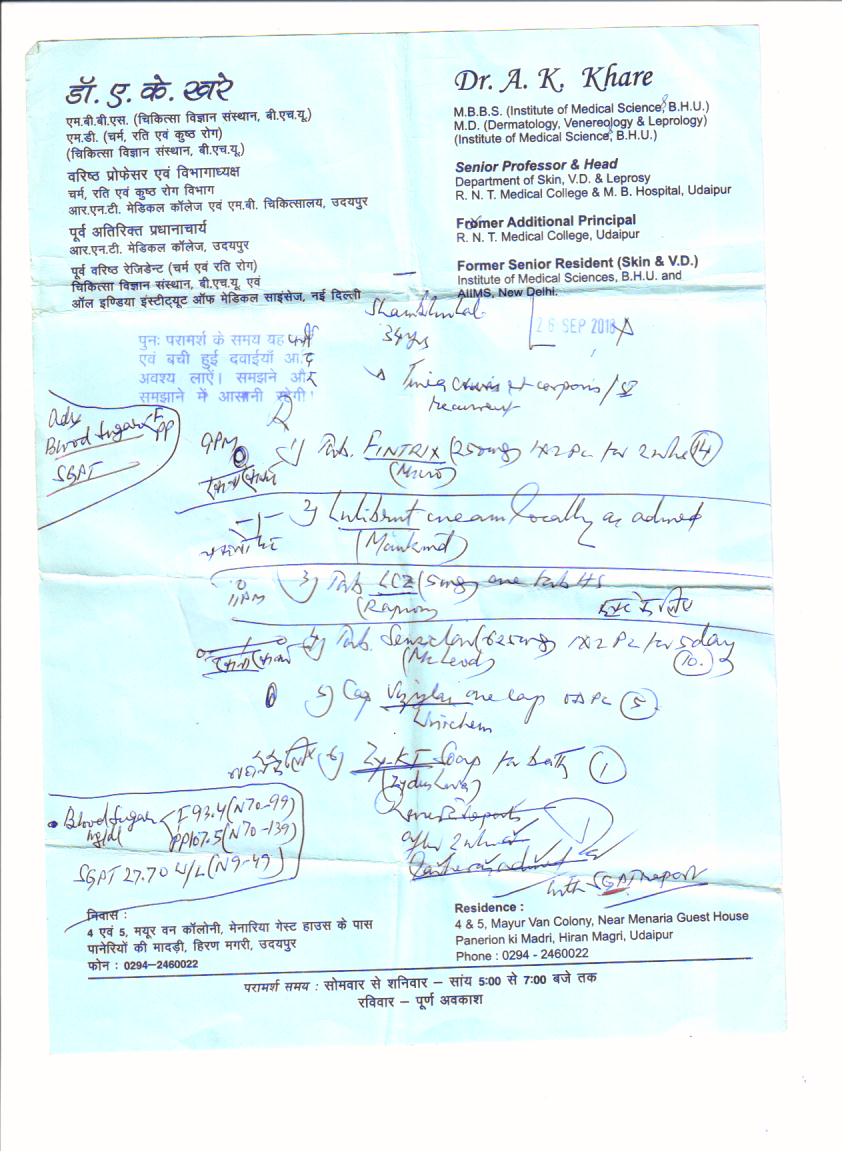 डॉ. ए. के. खरे
एम.बी.बी.एस. (चिकित्सा विज्ञान संस्थान, बी.एच.यू.)
एम.डी. (चर्म, रति एवं कुष्ठ रोग)
(चिकित्सा विज्ञान संस्थान, बी.एच.यू.)
वरिष्ठ प्रोफेसर एवं विभागाध्यक्ष
चर्म, रति एवं कुष्ठ रोग विभाग
आर.एन.टी. मेडिकल कॉलेज एवं एम.बी. चिकित्सालय, उदयपुर
पूर्व अतिरिक्त प्रधानाचार्य
आर.एन.टी. मेडिकल कॉलेज, उदयपुर
पूर्व वरिष्ठ रेजिडेन्ट (चर्म एवं रति रोग)
चिकित्सा विज्ञान संस्थान, बी.एच.यू. एवं
ऑल इण्डिया इंस्टीट्यूट ऑफ मेडिकल साइंसेज, नई दिल्ली
Dr. A. K. Khare
M.B.B.S. (Institute of Medical Science, B.H.U.)
M.D. (Dermatology, Venereology & Leprology)
(Institute of Medical Science, B.H.U.)
Senior Professor & Head
Department of Skin, V.D. & Leprosy
R. N. T. Medical College & M. B. Hospital, Udaipur
Former Additional Principal
R. N. T. Medical College, Udaipur
Former Senior Resident (Skin & V.D.)
Institute of Medical Sciences, B.H.U. and
AIIMS, New Delhi.
34 yrs
26 SEP 2018
पुनः परामर्श के समय यह पर्ची
एवं बची हुई दवाईयाँ आप
अवश्य लाऐं। समझने और
समझाने में आसानी रहेगी।
Tinea cruris et corporis
recurrent
Adv
Blood Sugar F PP
SGPT
9PM
1) Tab. FINTRIX (250mg) 1x2 Pc for 2 wks (14)
(Micro)
2) cream locally as advised
(Mankind)
11PM
3) Tab LCZ (5mg) one tab HS
4) Tab. (625mg) 1x2 Pc for 5 day
(McLeod) (10)
5) Cap one cap OD Pc (5)
Unichem
6) Zy-KT Soap for bath (1)
(Zydus)
Blood Sugar F 93.4 (N 70-99)
mg/dl PP 107.5 (N 70-139)
SGPT 27.70 U/L (N 9-49)
after 2 wks
with SGPT report
निवास :
4 एवं 5, मयूर वन कॉलोनी, मेनारिया गेस्ट हाउस के पास
पानेरियों की मादड़ी, हिरण मगरी, उदयपुर
फोन : 0294-2460022
Residence :
4 & 5, Mayur Van Colony, Near Menaria Guest House
Panerion ki Madri, Hiran Magri, Udaipur
Phone : 0294 - 2460022
परामर्श समय : सोमवार से शनिवार – सांय 5:00 से 7:00 बजे तक
रविवार – पूर्ण अवकाश